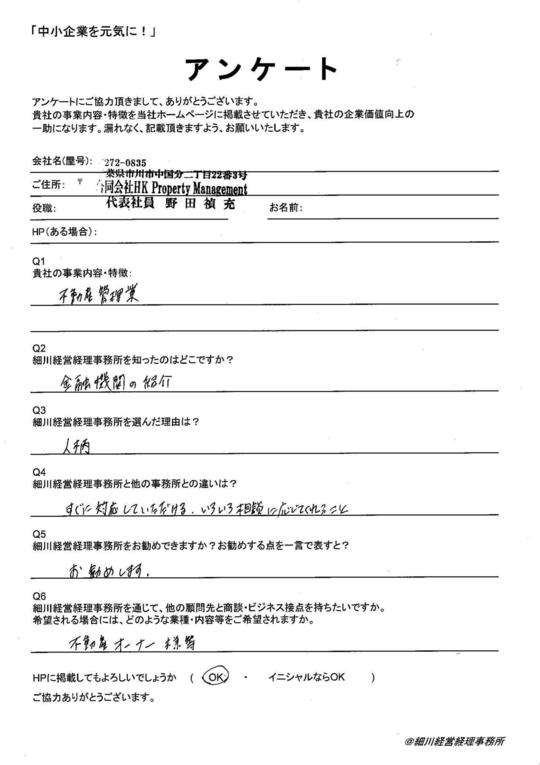 「中小企業を元気に！」
アンケート
アンケートにご協力頂きまして、ありがとうございます。
貴社の事業内容・特徴を当社ホームページに掲載させていただき、貴社の企業価値向上の
一助になります。漏れなく、記載頂きますよう、お願いいたします。
会社名(屋号): 272-0835
葉県市川市中国分二丁目22番3号
ご住所: 〒 同会社HK Property Management
役職: 代表社員 野田禎充 お名前:
HP(ある場合):
Q1
貴社の事業内容・特徴:
不動産管理業
Q2
細川経営経理事務所を知ったのはどこですか？
金融機関の紹介
Q3
細川経営経理事務所を選んだ理由は？
人柄
Q4
細川経営経理事務所と他の事務所との違いは？
すぐに対応していただける。いろいろ相談に応じてくれること
Q5
細川経営経理事務所をお勧めできますか？お勧めする点を一言で表すと？
お勧めします。
Q6
細川経営経理事務所を通じて、他の顧問先と商談・ビジネス接点を持ちたいですか。
希望される場合には、どのような業種・内容等をご希望されますか。
不動産オーナー様等
HPに掲載してもよろしいでしょうか ( OK ・ イニシャルならOK )
ご協力ありがとうございます。
@細川経営経理事務所